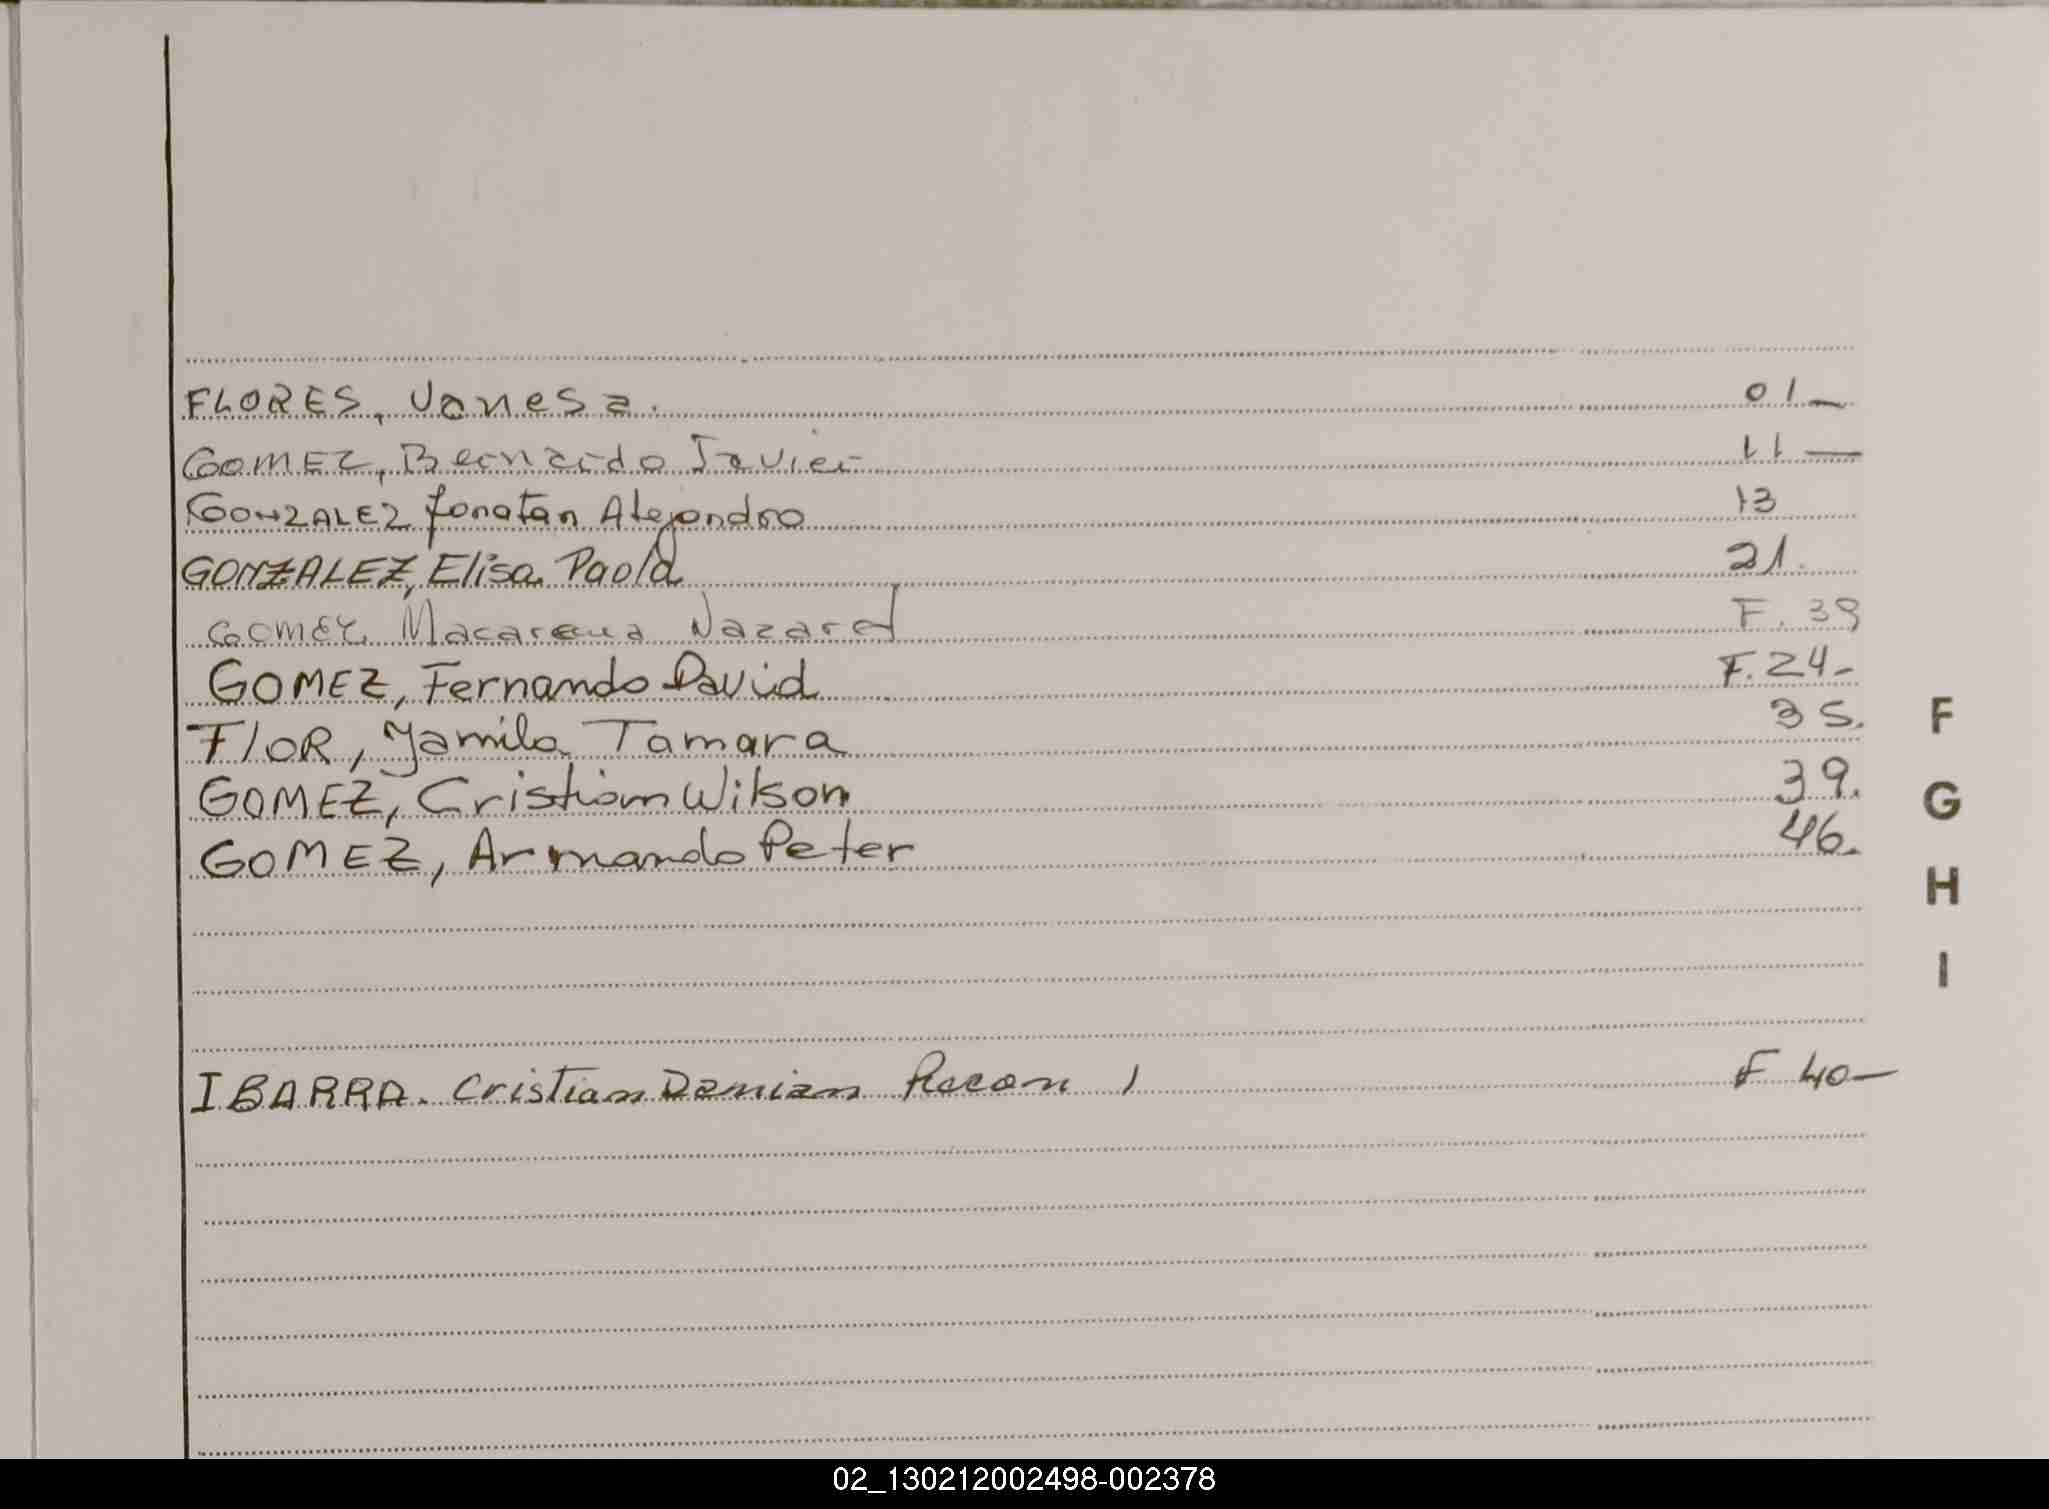 FLORES, Vanesa. 01_
GOMEZ, Bernardo Javier 11—
GONZALEZ Jonatan Alejandro 13
GONZALEZ, Elisa Paola 21.
GOMEZ Macarena Nazaret F. 39
GOMEZ, Fernando David F. 24-
FlOR, Yamila Tamara 35.
F
GOMEZ, Cristiam Wilson 39.
G
GOMEZ, Armando Peter 46.
H
I
IBARRA. Cristian Damian F 40—
02_130212002498-002378